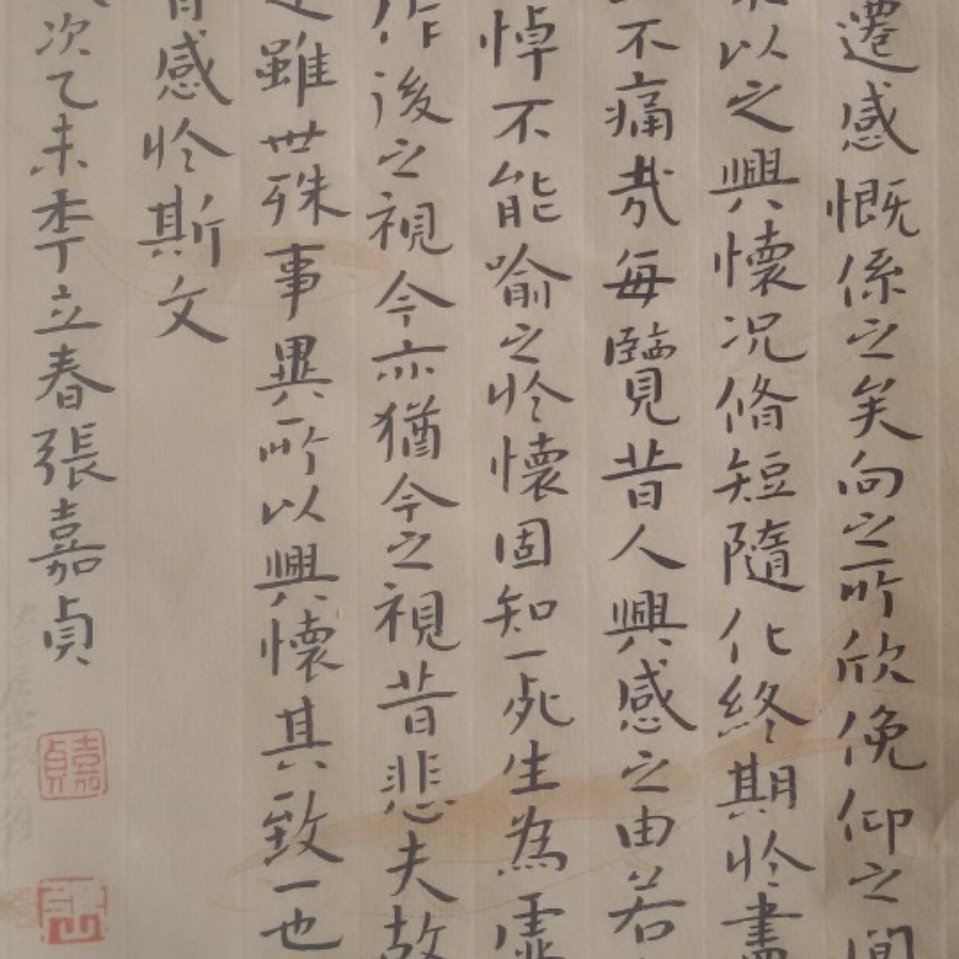 遷感慨係之矣向之所欣俛仰之間
以之興懷況脩短隨化終期於盡
不痛哉每覽昔人興感之由若
悼不能喻之於懷固知一死生為虛
作後之視今亦猶今之視昔悲夫故
雖世殊事異所以興懷其致一也
有感於斯文
次乙未季立春張嘉貞
嘉貞